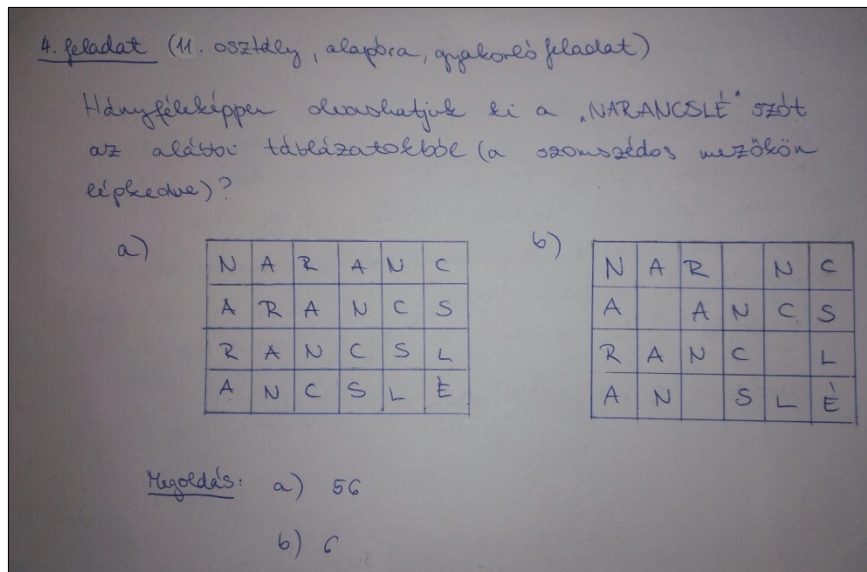 4. feladat (11. osztály, alapóra, gyakorló feladat)
Hányféleképpen olvashatjuk ki a „NARANCSLÉ" szót
az alábbi táblázatokból (a szomszédos mezőkön
lépkedve)?
a)
N A R A N C
A R A N C S
R A N C S L
A N C S L É
b)
N A R N C
A A N C S
R A N C L
A N S L É
Megoldás: a) 56
b) 6